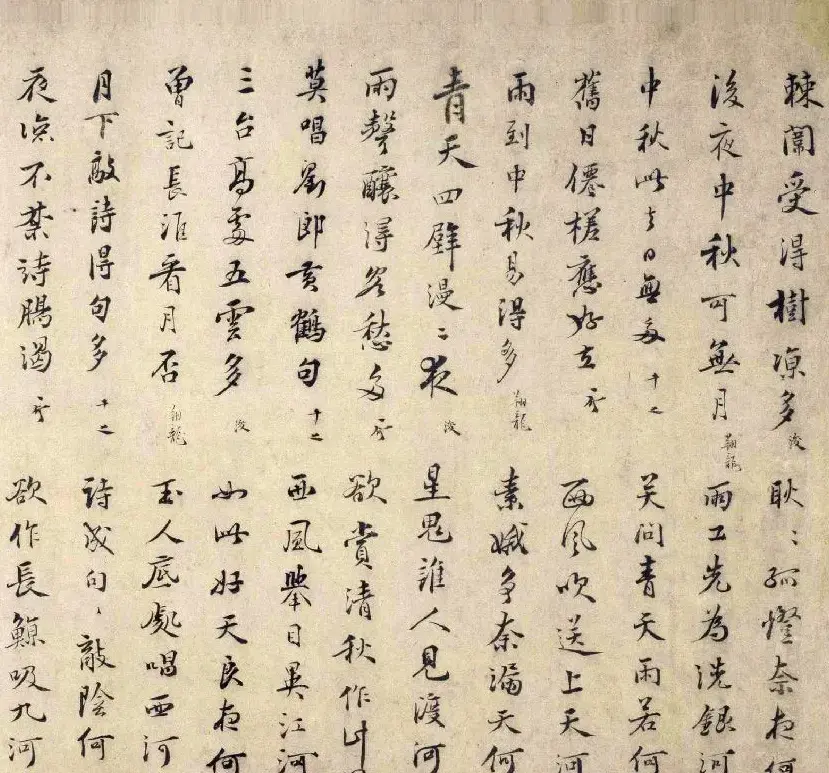 棘闈受得樹凉多 浚 耿〻孤燈奈夜何
後夜中秋可無月 翔龍 雨工先為洗銀河
中秋此去日無多 十之 笑問青天雨若何
舊日僊槎應好在 西風吹送上天河
雨到中秋易得多 翔龍 素娥争奈漏天何
青天四壁漫〻夜 浚 星鬼誰人見渡河
雨聲釀得客愁多 欲賞清秋作
莫唱劉郎黄鶴句 十之 西風舉目異江河
三台高處五雲多 浚 如此好天良夜何
曾記長淮看月否 翔龍 玉人底處唱西河
月下敲詩得句多 十之 詩成句〻敲陰何
夜凉不禁詩腸渴 欲作長鯨吸九河